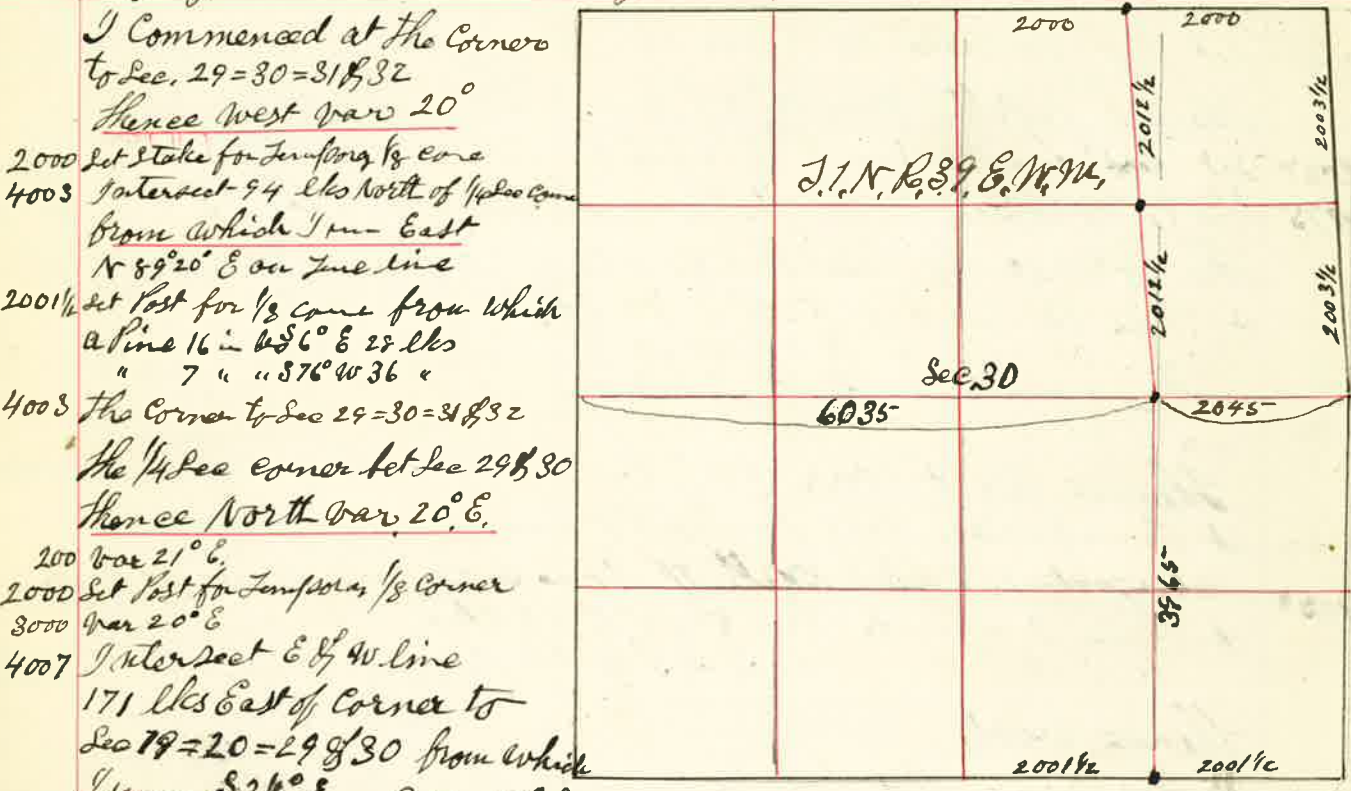 I Commenced at the Corner
to Sec. 29=30=31 & 32
Thence West Var 20°
2000 Set Stake for Temporary 1/8 corner
4003 Intersect 94 lks North of 1/4 Sec corner
from which I run East
N 89°20' E on true line
2001 1/2 Set Post for 1/8 corner from which
a Pine 16 in 6° E 28 lks
" 7 " " S76° W 36 "
4003 the Corner to Sec 29=30=31 & 32
The 1/4 Sec corner bet Sec 29 & 30
Thence North Var. 20° E.
200 Var 21° E.
2000 Set Post for Temporary 1/8 Corner
3000 Var 20° E
4007 Intersect E & W line
171 lks East of Corner to
Sec 19=20=29 & 30 from which
2000 2000
2012 1/2
2003 1/2
T.1.N.R.39.E.W.M.
2012 1/2
2003 1/2
Sec. 30
6035
2045
3965
2001 1/2 2001 1/2